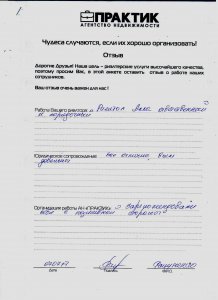 ПРАКТИК
АГЕНТСТВО НЕДВИЖИМОСТИ
Чудеса случаются, если их хорошо организовать!
Отзыв
Дорогие друзья! Наша цель – риэлтерские услуги высочайшего качества,
поэтому просим Вас, в этой анкете оставить отзыв о работе наших
сотрудников.
Ваш отзыв очень важен для нас!
Работа Вашего риэлтора:
и порядочный
Юридическое сопровождение: Все отлично, были
довольны
Организация работы АН «ПРАКТИК»: зарекомендовали
себя с позитивной стороны
Дата
Подпись
Ф.И.О.